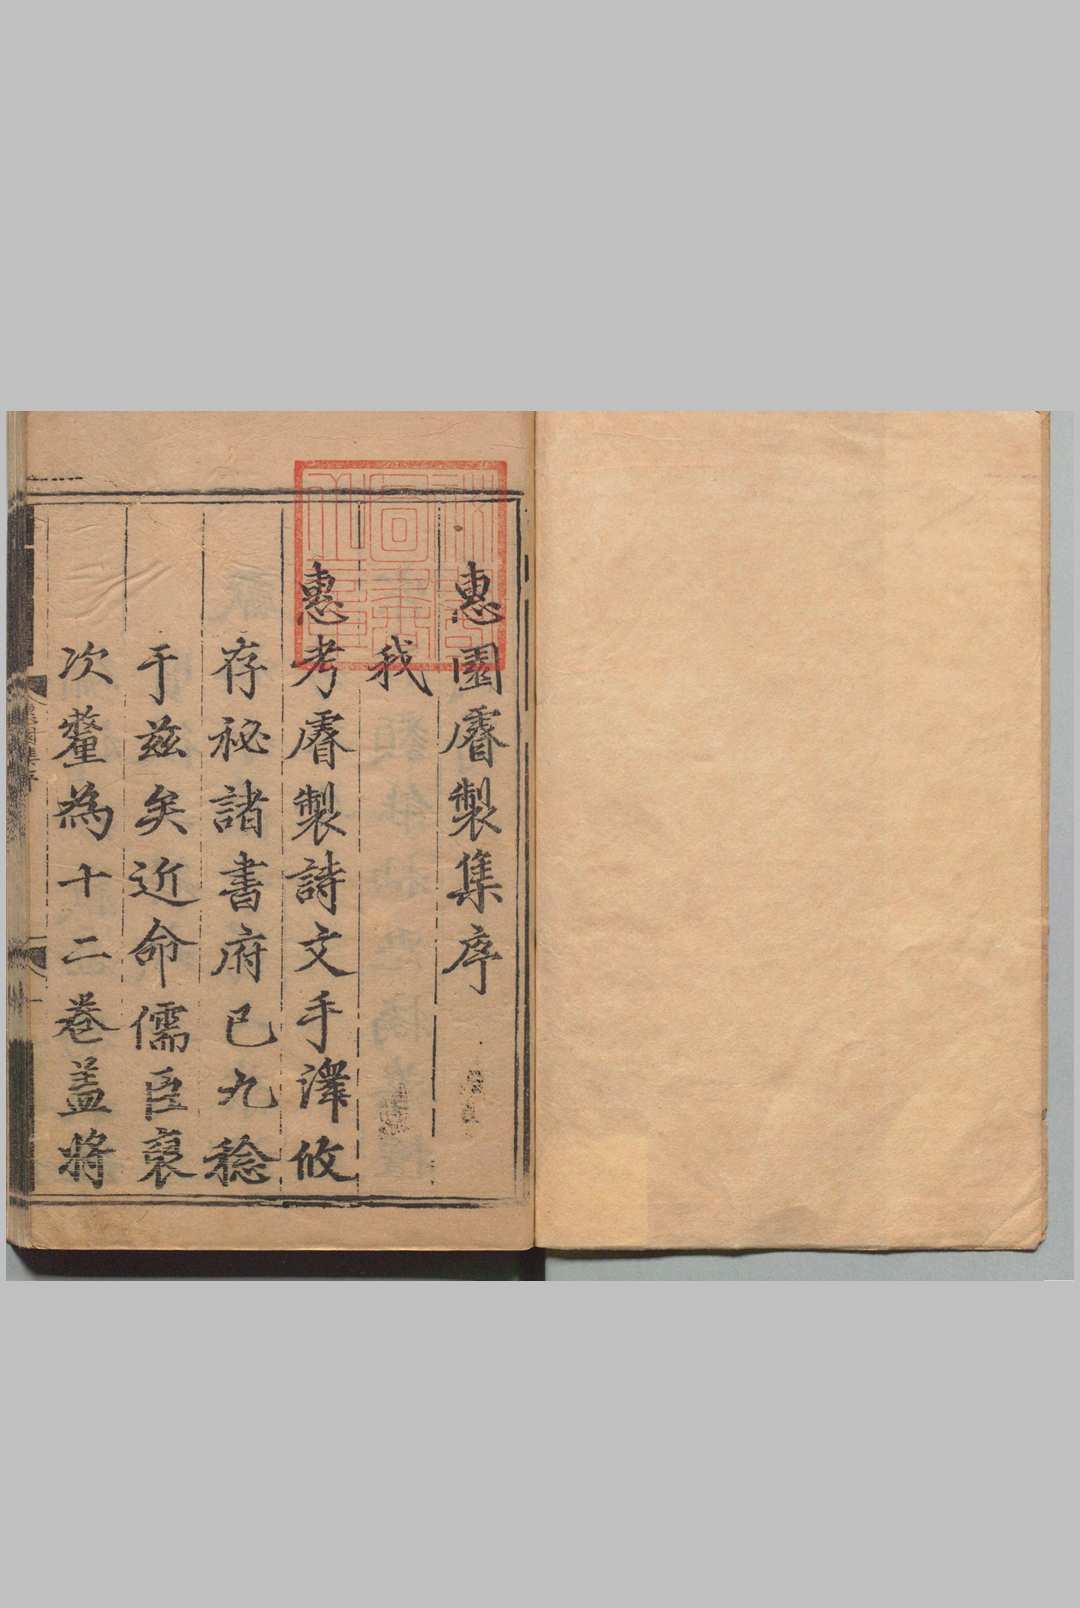 惠園睿製集序
我
惠考睿製詩文手澤攸
存秘諸書府已九稔
于玆矣近命儒臣裒
次釐為十二卷盖將